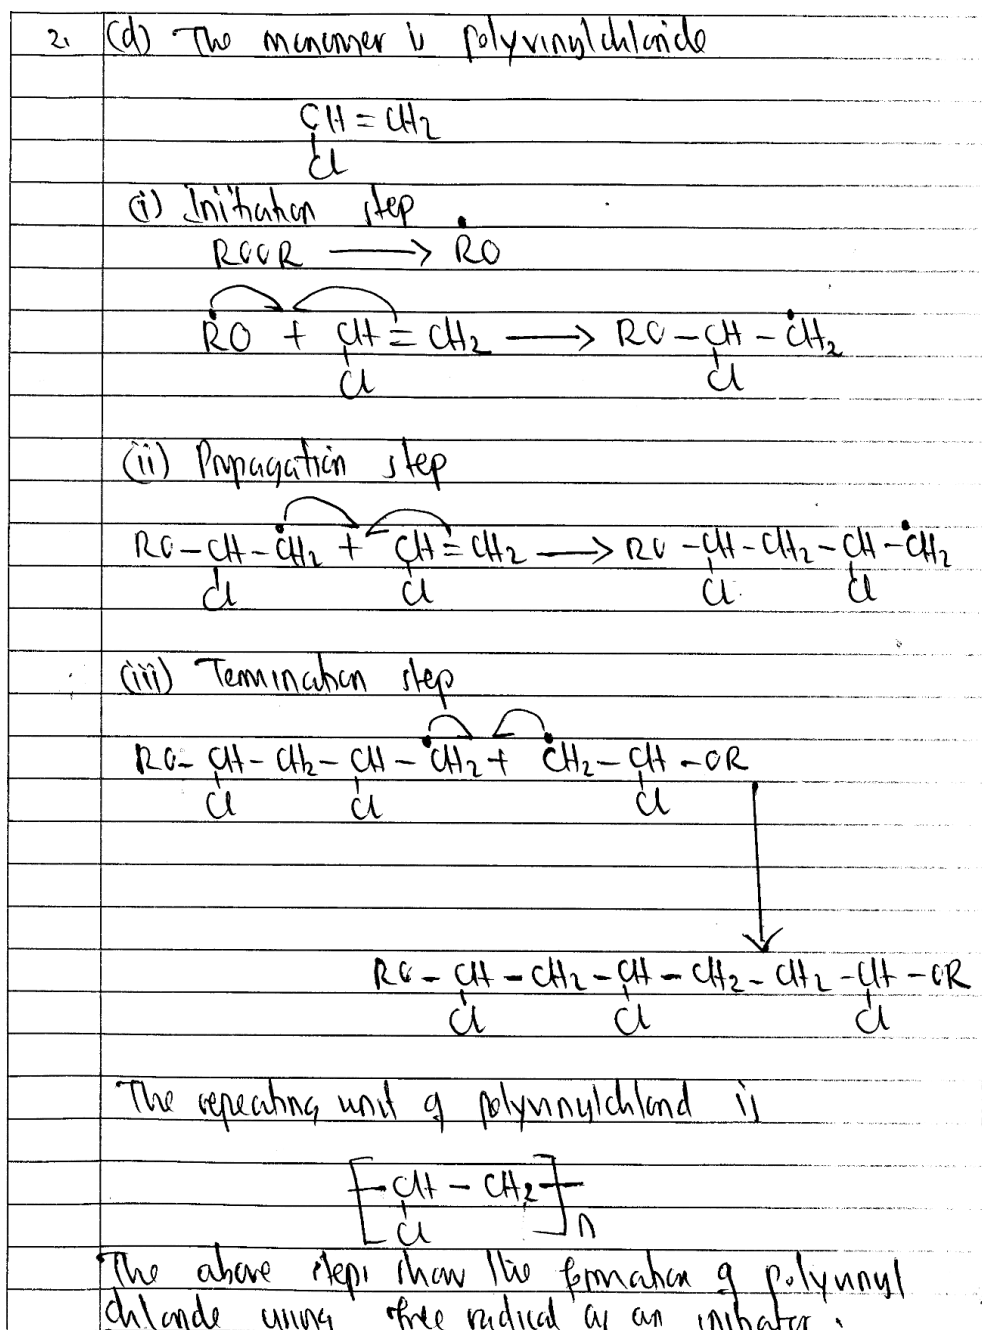 2. (d) The monomer is polyvinylchloride
CH = CH2
Cl
(i) Initiation step
ROOR → ṘO
ṘO + CH = CH2 → RO – CH – ĊH2
Cl Cl
(ii) Propagation step
RO – CH – ĊH2 + CH = CH2 → RO – CH – CH2 – CH – ĊH2
Cl Cl Cl Cl
(iii) Termination step
RO – CH – CH2 – CH – ĊH2 + ĊH2 – CH – OR
Cl Cl Cl
RO – CH – CH2 – CH – CH2 – CH2 – CH – OR
Cl Cl Cl
The repeating unit of polyvinylchlorid is
[ CH – CH2 ]n
Cl
The above steps show the formation of polyvinyl
chloride using free radical as an initiator.